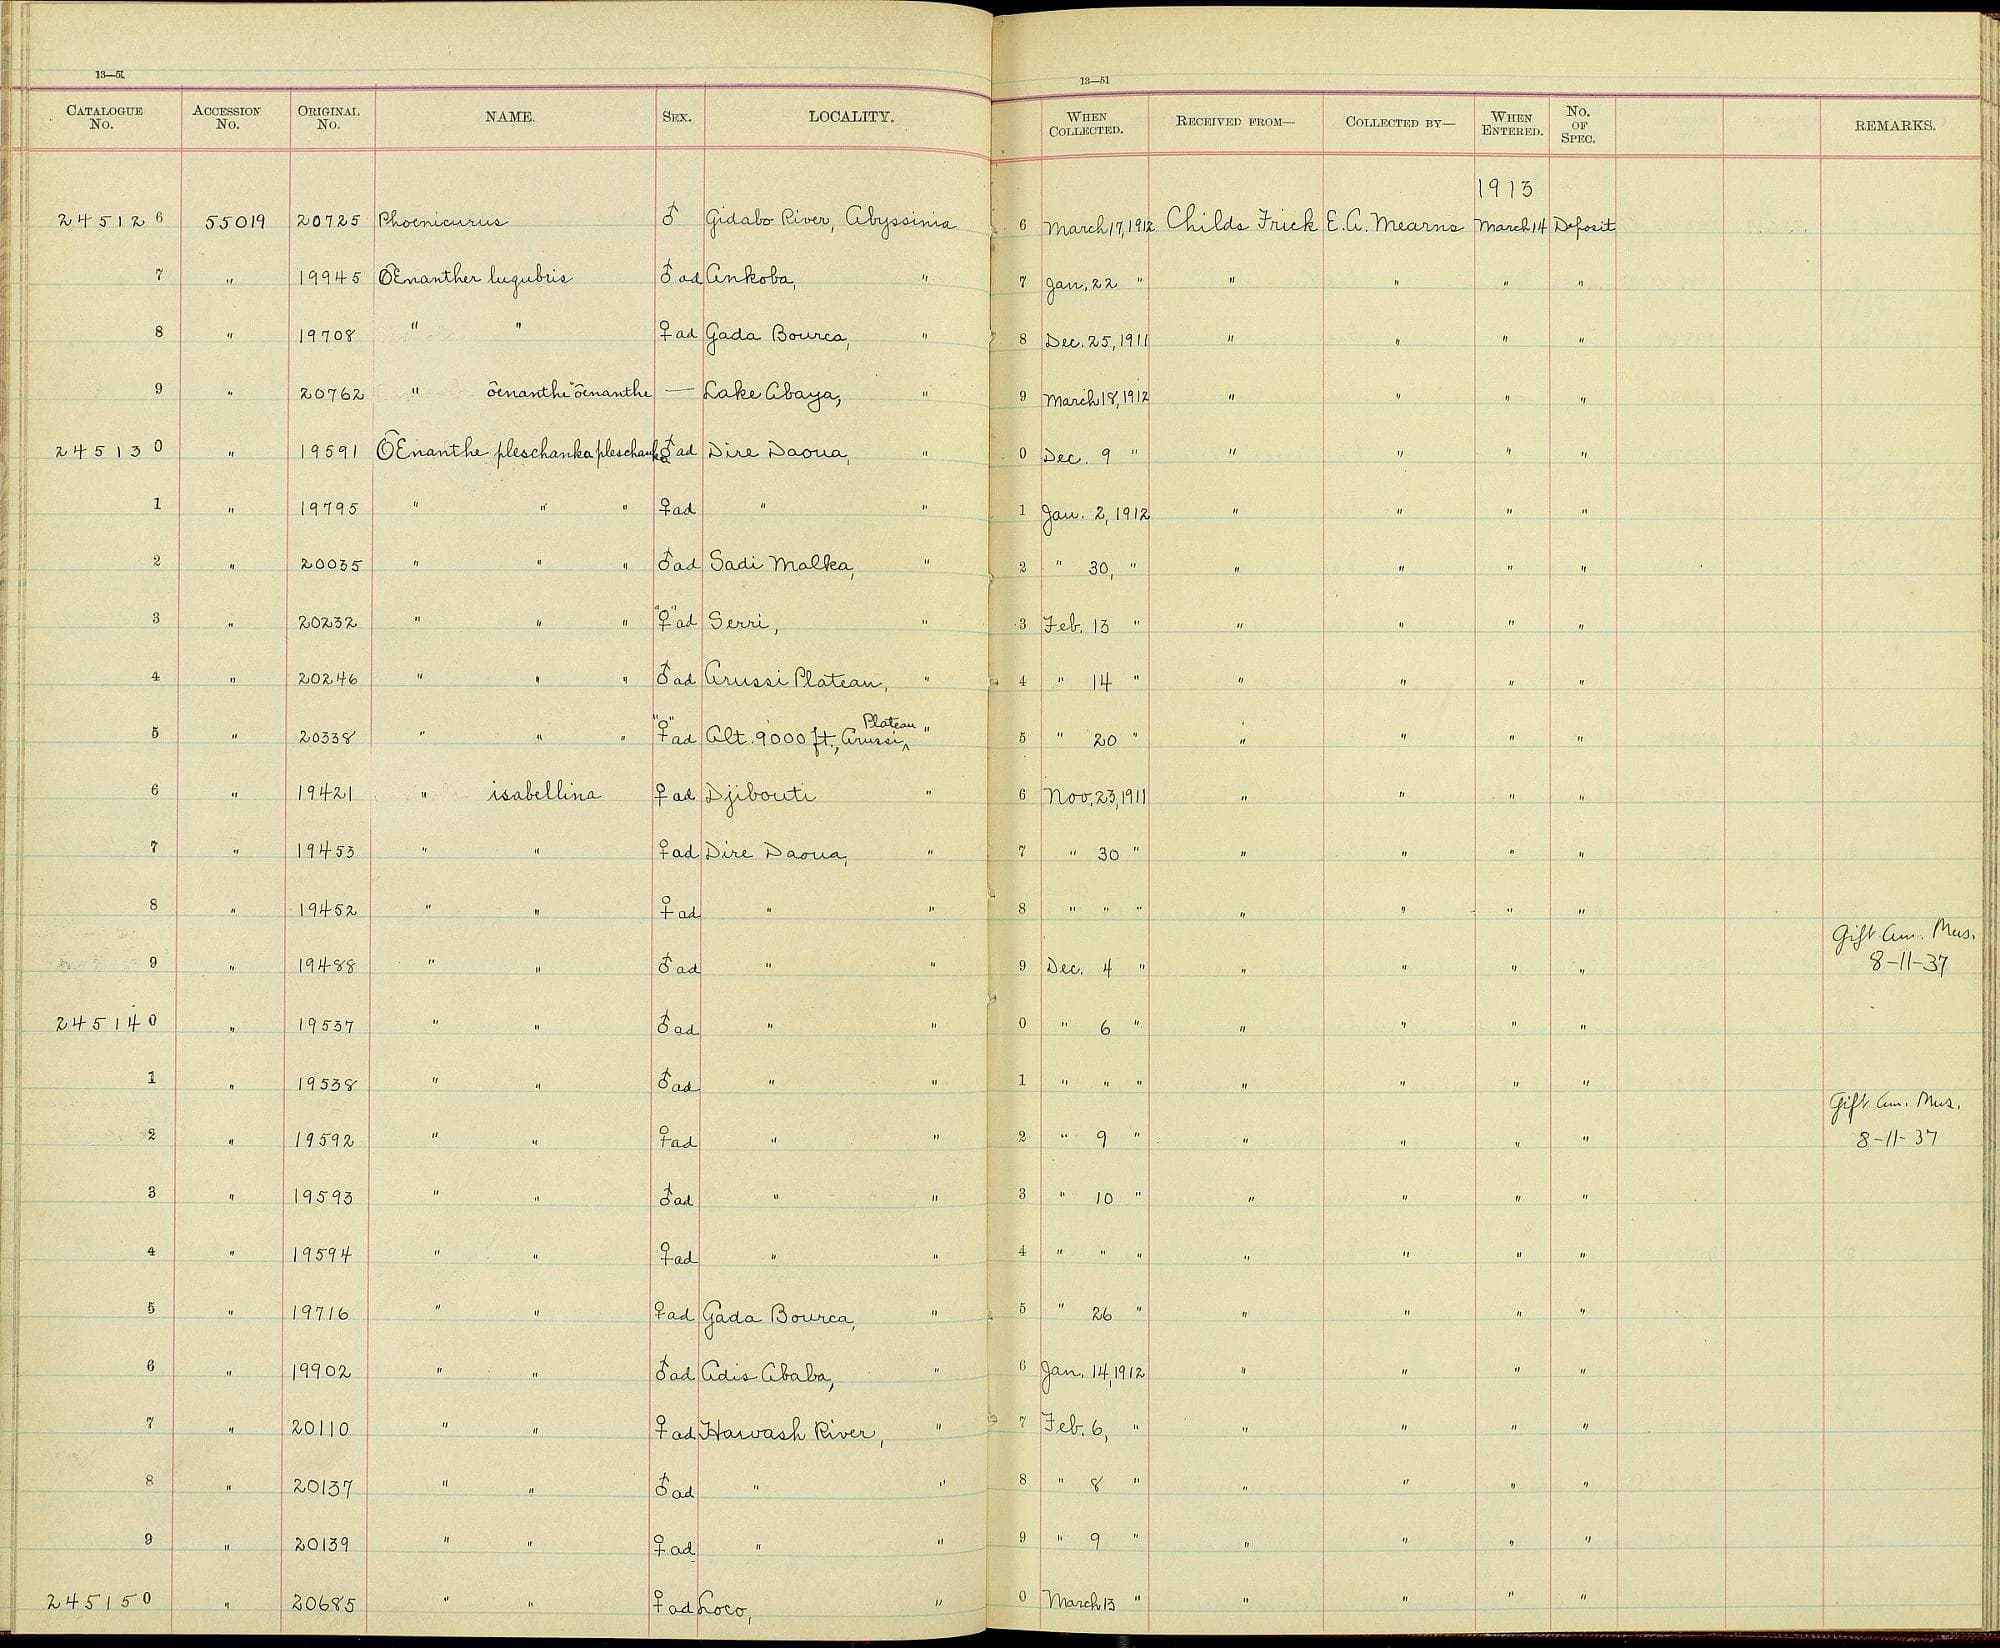 13—51
13—51
CATALOGUE No. ACCESSION No. ORIGINAL No. NAME. SEX. LOCALITY. WHEN COLLECTED. RECEIVED FROM— COLLECTED BY— WHEN ENTERED. No. OF SPEC. REMARKS.
1913
245126 55019 20725 Phoenicurus ♂ Gidabo River, Abyssinia 6 March 17, 1912 Childs Frick E. A. Mearns March 14 Deposit
7 " 19945 ŒEnanther lugubris ♂ ad Ankoba, " 7 Jan. 22 " " " " "
8 " 19708 " " ♀ ad Gada Bourca, " 8 Dec. 25, 1911 " " " "
9 " 20762 " ôenanthe ôenanthe — Lake Abaya, " 9 March 18, 1912 " " " "
245130 " 19591 ÔEnanthe pleschanka pleschanka ♂ ad Dire Daoua, " 0 Dec. 9 " " " " "
1 " 19795 " " " ♀ ad " " 1 Jan. 2, 1912 " " " "
2 " 20035 " " " ♂ ad Sadi Malka, " 2 " 30, " " " " "
3 " 20232 " " " "♀" ad Serri, " 3 Feb. 13 " " " " "
4 " 20246 " " " ♂ ad Arussi Plateau, " 4 " 14 " " " " "
5 " 20338 " " " "♀" ad Alt. 9000 ft., Arussi, ^ Plateau " 5 " 20 " " " " "
6 " 19421 " isabellina ♀ ad Djibouti " 6 Nov. 23, 1911 " " " "
7 " 19453 " " ♀ ad Dire Daoua, " 7 " 30 " " " " "
8 " 19452 " " ♀ ad " " 8 " " " " " " "
9 " 19488 " " ♂ ad " " 9 Dec. 4 " " " " " Gift Am. Mus. 8-11-37
245140 " 19537 " " ♂ ad " " 0 " 6 " " " " "
1 " 19538 " " ♂ ad " " 1 " " " " " " "
2 " 19592 " " ♀ ad " " 2 " 9 " " " " " Gift Am. Mus. 8-11-37
3 " 19593 " " ♂ ad " " 3 " 10 " " " " "
4 " 19594 " " ♀ ad " " 4 " " " " " " "
5 " 19716 " " ♀ ad Gada Bourca, " 5 " 26 " " " " "
6 " 19902 " " ♂ ad Adis Ababa, " 6 Jan. 14, 1912 " " " "
7 " 20110 " " ♀ ad Hawash River, " 7 Feb. 6, " " " " "
8 " 20137 " " ♂ ad " " 8 " 8 " " " " "
9 " 20139 " " ♀ ad " " 9 " 9 " " " " "
245150 " 20685 " " ♀ ad Loco, " 0 March 13 " " " " "